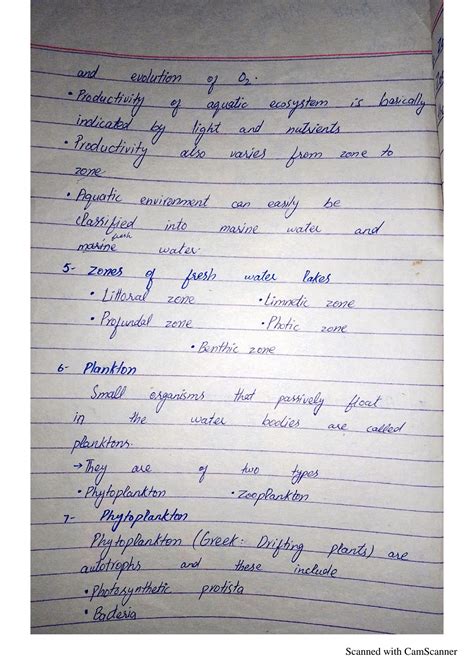 and evolution of O2.
• Productivity of aquatic ecosystem is basically
indicated by light and nutrients
• Productivity also varies from zone to
zone.
• Aquatic environment can easily be
classified into marine water and
fresh
marine water.
5- Zones of fresh water lakes
• Littoral zone • Limnetic zone
• Profundal zone • Photic zone
• Benthic zone
6- Plankton
Small organisms that passively float
in the water bodies are called
planktons.
→ They are of two types
• Phytoplankton • Zooplankton
7- Phytoplankton
Phytoplankton (Greek: Drifting plants) are
autotrophs and these include
• Photosynthetic protista
• Bacteria
Scanned with CamScanner